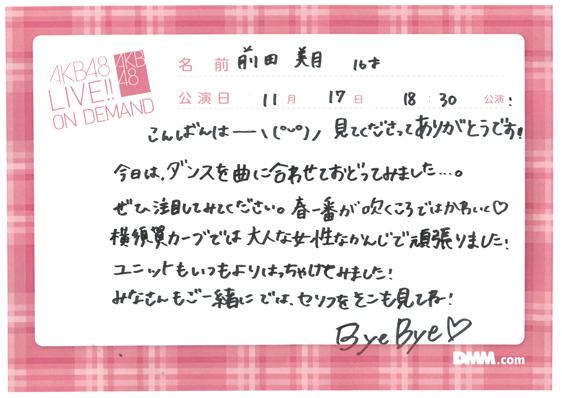 AKB48
LIVE!!
ON DEMAND
AKB
48
名前 前田 美月 16才
公演日 11月 17日 18:30 公演!
こんばんはーー\(^o^)ノ 見てくださってありがとうです!
今日は、ダンスを曲に合わせておどってみました…。
ぜひ注目してみてください。春一番が吹くころではかわいく♡
横須賀カーブでは大人な女性なかんじで頑張りました!
ユニットもいつもよりはっちゃけてみました!
みなさんもご一緒に では、セリフをそこも見てね!
ByeBye♡
DMM.com